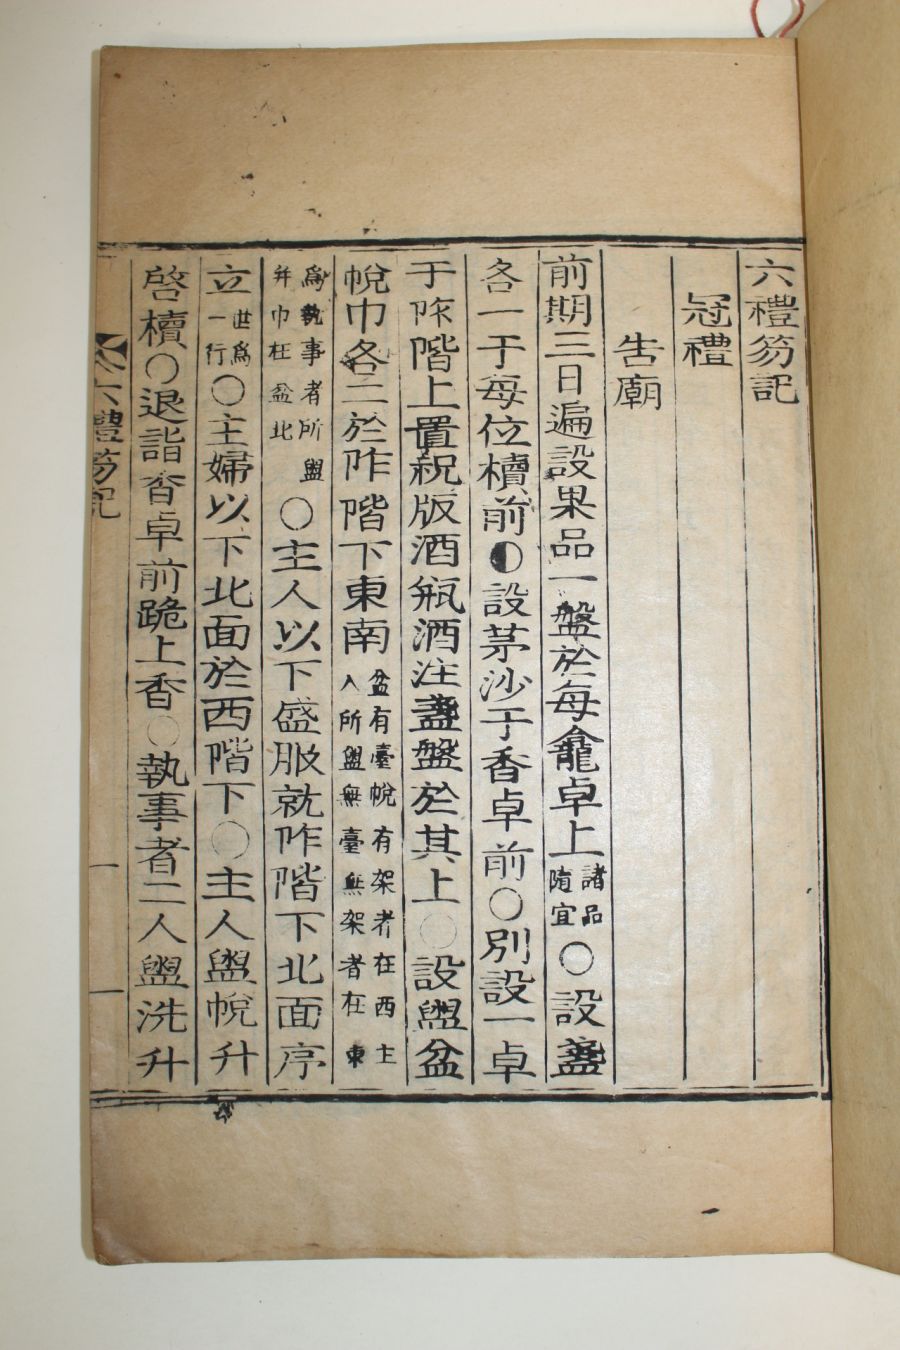 六禮笏記
冠禮
告廟
前期三日遍設果品一盤於每龕卓上諸品隨宜○設盞
各一于每位櫝前○設茅沙于香卓前○別設一卓
于阼階上置祝版酒瓶酒注盞盤於其上○設盥盆
帨巾各二於阼階下東南盆有臺帨有架者在西主人所盥無臺無架者在東
為執事者所盥并巾在盆北○主人以下盛服就阼階下北面序
立世為一行○主婦以下北面於西階下○主人盥帨升
啓櫝○退詣香卓前跪上香○執事者二人盥洗升
六禮笏記 一